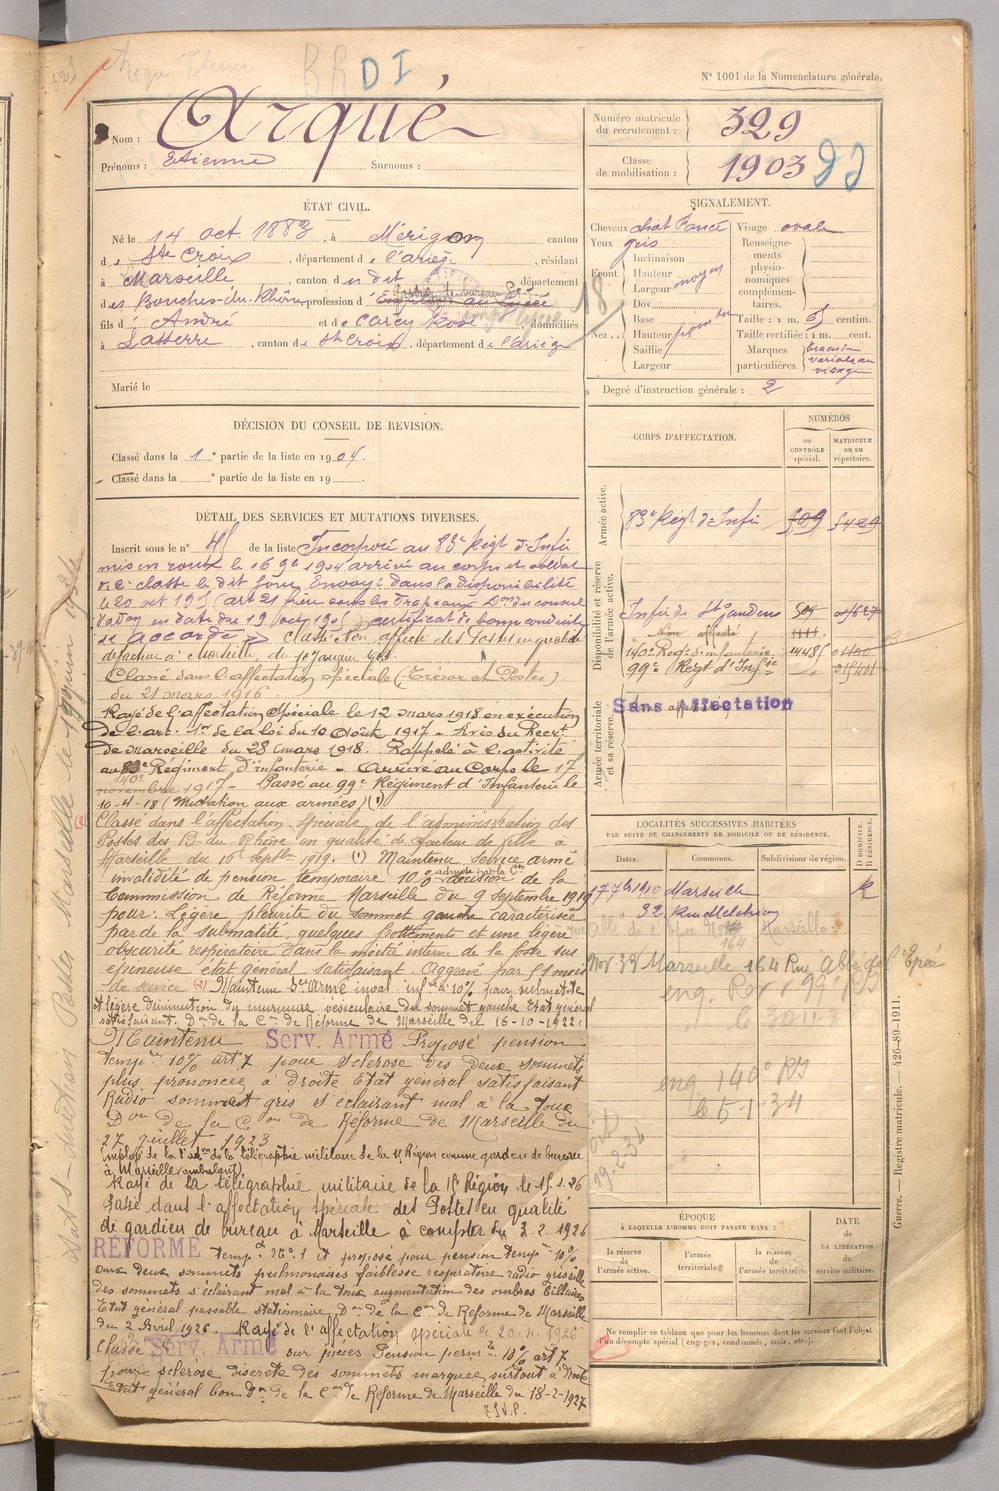 BR DI
N° 1001 de la Nomenclature générale.
Nom : Arqué
Prénoms : Etienne Surnoms :
Numéro matricule du recrutement : 329
Classe de mobilisation : 1903
ÉTAT CIVIL.
Né le 14 oct. 1883, à Mérigon canton
de Ste Croix, département de l'ariège, résidant
à Marseille, canton du dit département
des Bouches-du-Rhône profession d'
fils d' André et de Carey Rose domiciliés
à Lasserre, canton de Ste Croix, département de l'ariège
Marié le
SIGNALEMENT.
Cheveux chat. foncé Visage ovale
Yeux gris
Renseignements physionomiques complémentaires.
Front Inclinaison
Hauteur moyen
Largeur
Nez Dos
Base
Hauteur
Saillie
Largeur
Taille : 1 m. 65 centim.
Taille rectifiée : 1 m. cent.
Marques particulières.
visage
Degré d'instruction générale : 2
DÉCISION DU CONSEIL DE REVISION.
Classé dans la 1e partie de la liste en 1904.
Classé dans la e partie de la liste en 19
DÉTAIL DES SERVICES ET MUTATIONS DIVERSES.
Inscrit sous le n° 45 de la liste Incorporé au 83e Régt d'Infie
mis en route le 16 9bre 1904 arrivé au corps et soldat
de 2e classe le dit jour. Envoyé dans la disponibilité
le 20 oct 1905 (art 21 frère sous les drapeaux Don du conseil
d'adon en date du 12 oct 1905) certificat de bonne conduite
accordé Classé Non affecté des Postes en qualité
de facteur à Marseille du 1er Janvier
Classé dans l'affectation spéciale (Trésor et Postes)
du 21 mars 1916
Rayé de l'affectation Spéciale le 12 mars 1918 en exécution
de l'art. 1er de la loi du 10 Août 1917 - Avis du Recrt
de Marseille du 28 mars 1918. Rappelé à l'activité
au 140e Régiment d'infanterie - Arrivé au Corps le 17
novembre 1917 - Passé au 99e Régiment d'Infanterie le
10-4-18 (Mutation aux armées) (1)
Classé dans l'affectation spéciale de l'administration des
Postes des B-du-Rhône en qualité de facteur de ville à
Marseille du 16 Septbre 1919. (1) Maintenu service armé
invalidité de pension temporaire 10% décision de la
Commission de Réforme Marseille du 9 Septembre 1919
pour : Légère pleurite du sommet gauche caractérisée
par de la submatité, quelques frottements et une légère
obscurité respiratoire dans la moitié interne de la fosse sus
épineuse état général satisfaisant. Aggravé par 51 mois
de service (2) Maintenu Sce Armé inval. infre à 10% pour submatité
et légère diminution du murmure vésiculaire du sommet gauche Etat général
satisfaisant. Don de la Con de Réforme de Marseille du 16-10-1922.
Maintenu Serv. Armé Proposé pension
tempre 10% art 7 pour sclérose des deux sommets
plus prononcée à droite Etat général satisfaisant
Radio sommet gris s'éclairant mal à la toux
Don de la Con de Réforme de Marseille du
27 juillet 1923
Employé de la télégraphie militaire de la 15e Région comme gardien de bureau
à Marseille
Rayé de la télégraphie militaire de la 15e Région le 15.1.26
Passé dans l'affectation spéciale des Postes en qualité
de gardien de bureau à Marseille à compter du 3.2.1926
RÉFORMÉ tempre n° 1 et proposé pour pension tempre 10%
aux deux sommets pulmonaires faiblesse respiratoire radio grisaille
des sommets s'éclairant mal à la toux augmentation des ombres hilaires
Etat général passable stationnaire. Don de la Con de Réforme de Marseille
du 2 Avril 1926. Rayé de l'affectation spéciale le 20.4.1926
Classé Serv. Armé sur pièces Pension perm. 10% art 7
pour sclérose discrète des sommets marquée surtout à droite
Etat général bon Don de la Con de Réforme de Marseille du 18-2-1927
T.S.V.P.
CORPS D'AFFECTATION.
NUMÉROS
au contrôle spécial.
matricule ou au répertoire.
Armée active.
83e Régt d'Infie 509 5429
Disponibilité et réserve de l'armée active.
Infie de St Gaudens
Non affecté
140e Reg. d'infanterie
99e Régt d'Infie
Armée territoriale et sa réserve.
Sans Affectation
LOCALITÉS SUCCESSIVES HABITÉES
PAR SUITE DE CHANGEMENTS DE DOMICILE OU DE RÉSIDENCE.
Dates. Communes. Subdivisions de région.
D DOMICILE. R RÉSIDENCE.
7bre 1910 Marseille R
32. Rue Melchion
rue Abbé de l'Epée Marseille
164
Nov 32 Marseille 164 Rue Abbé de l'Epée
eng. Rés 99e RI
le 30 11 3
eng 140e RI
le 5-1-34
19-2-34
ÉPOQUE
À LAQUELLE L'HOMME DOIT PASSER DANS :
la réserve de l'armée active.
l'armée territoriale
la réserve de l'armée territoriale
DATE
DE
LA LIBÉRATION
du
service militaire.
Ne remplir ce tableau que pour les hommes dont les services font l'objet
d'un décompte spécial (engagés, condamnés, omis, etc.).
Guerre. — Registre matricule. — 426-89-1911.